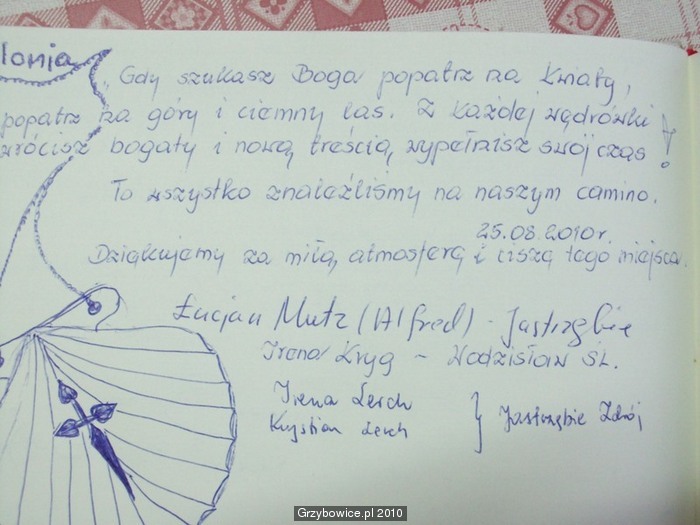 lonia
„Gdy szukasz Boga popatrz na kwiaty,
popatrz na góry i ciemny las. Z każdej wędrówki
wrócisz bogaty i nową treścią wypełnisz swój czas!
To wszystko znaleźliśmy na naszym camino.
25.08.2010r.
Dziękujemy za miłą atmosferę i ciszę tego miejsca.
Łucjan Mutz (Alfred) - Jastrzębie
Irena Kryg - Wodzisław Śl.
Irena Lerch
Krystian Lerch } Jastrzębie Zdrój
Grzybowice.pl 2010